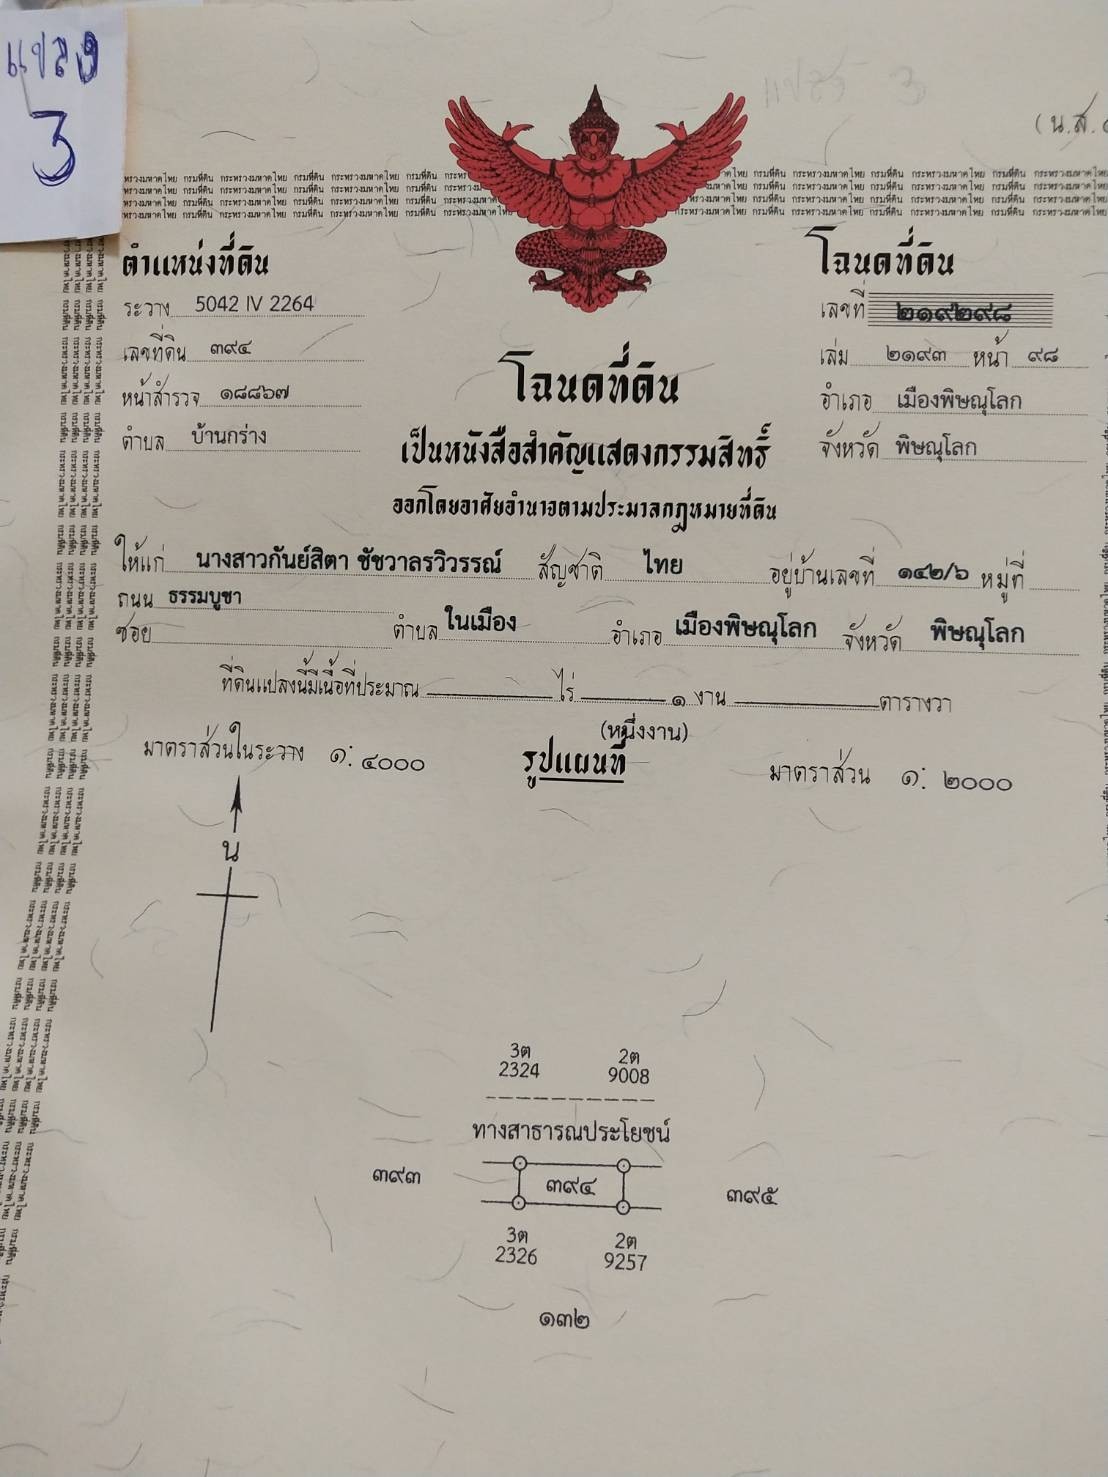 แปลง
3
แปลง 3
(น.ส.
กระทรวงมหาดไทย กรมที่ดิน กระทรวงมหาดไทย กรมที่ดิน
ตำแหน่งที่ดิน
ระวาง 5042 IV 2264
เลขที่ดิน ๓๙๔
หน้าสำรวจ ๑๘๘๖๗
ตำบล บ้านกร่าง
โฉนดที่ดิน
เลขที่ ๒๑๙๒๙๘
เล่ม ๒๑๙๓ หน้า ๙๘
อำเภอ เมืองพิษณุโลก
จังหวัด พิษณุโลก
โฉนดที่ดิน
เป็นหนังสือสำคัญแสดงกรรมสิทธิ์
ออกโดยอาศัยอำนาจตามประมวลกฎหมายที่ดิน
ให้แก่ นางสาวกันย์สิตา ชัชวาลรวิวรรณ์ สัญชาติ ไทย อยู่บ้านเลขที่ ๑๔๒/๖ หมู่ที่
ถนน ธรรมบูชา
ซอย ตำบล ในเมือง อำเภอ เมืองพิษณุโลก จังหวัด พิษณุโลก
ที่ดินแปลงนี้มีเนื้อที่ประมาณ ไร่ ๑ งาน ตารางวา
(หนึ่งงาน)
มาตราส่วนในระวาง ๑: ๔๐๐๐ รูปแผนที่ มาตราส่วน ๑: ๒๐๐๐
น
3ต 2ต
2324 9008
ทางสาธารณประโยชน์
๓๙๓ ๓๙๔ ๓๙๕
3ต 2ต
2326 9257
๑๓๒